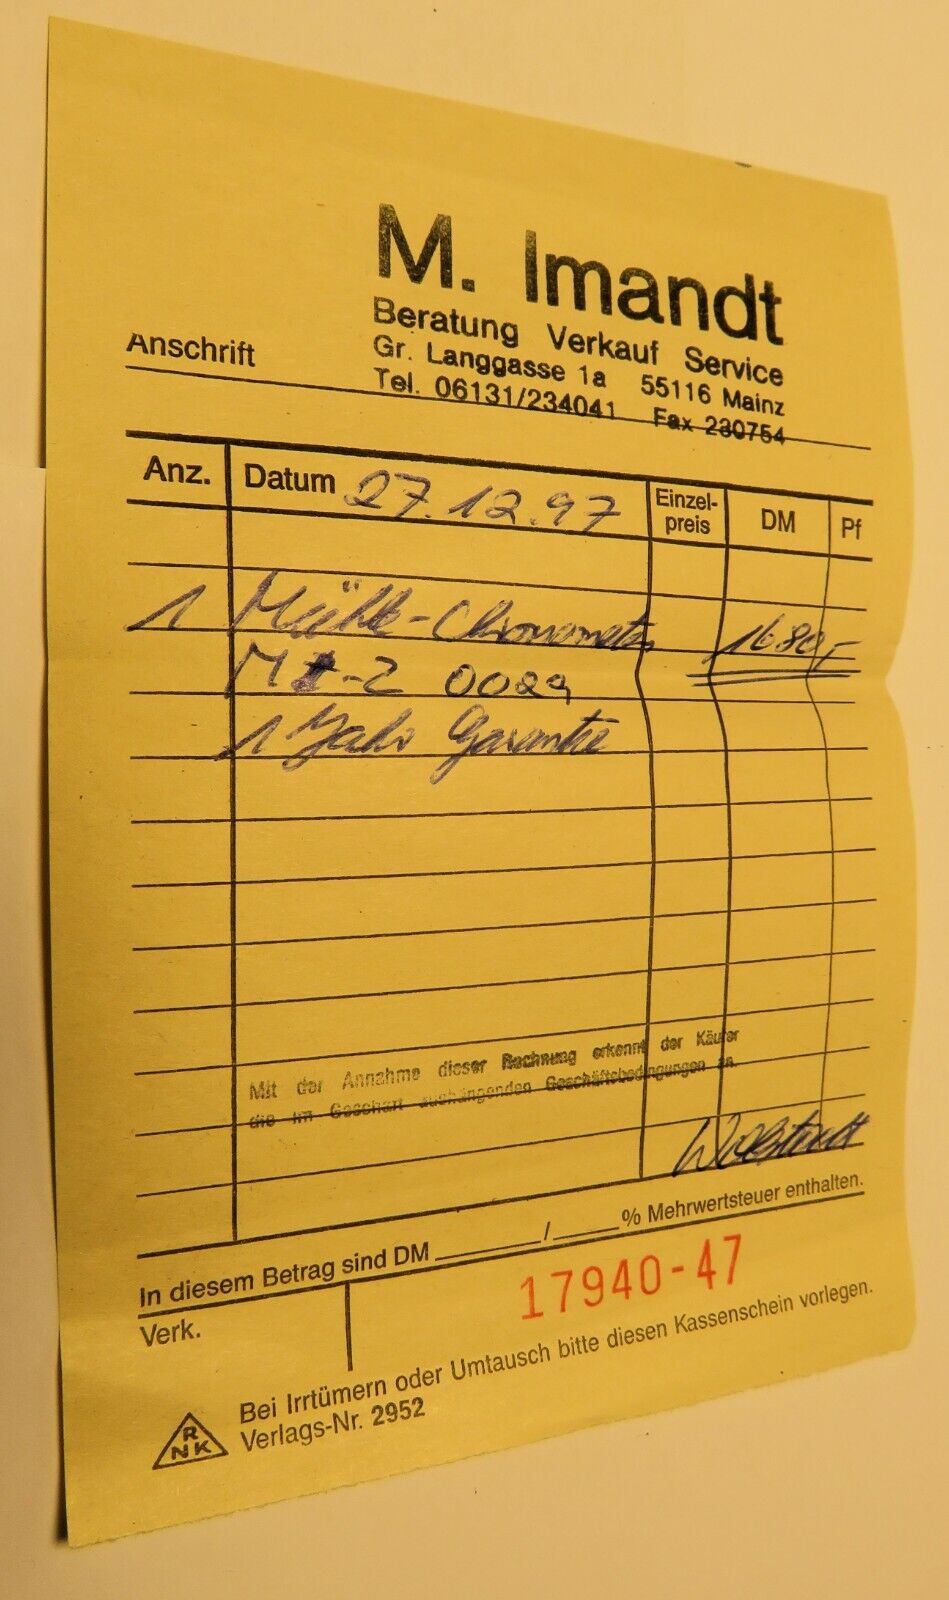 M. Imandt
Beratung Verkauf Service
Gr. Langgasse 1a 55116 Mainz
Tel. 06131/234041 Fax 230754
Anschrift
Anz. Datum 27.12.97 Einzel-preis DM Pf
1 Mühle-Chronometer 1680,-
M -2 0029
1 Jahr Garantie
Mit der Annahme dieser Rechnung erkennt der Käufer
die im Geschäft aushängenden Geschäftsbedingungen an.
In diesem Betrag sind DM ______ / ____ % Mehrwertsteuer enthalten.
Verk. 17940-47
Bei Irrtümern oder Umtausch bitte diesen Kassenschein vorlegen.
RNK Verlags-Nr. 2952